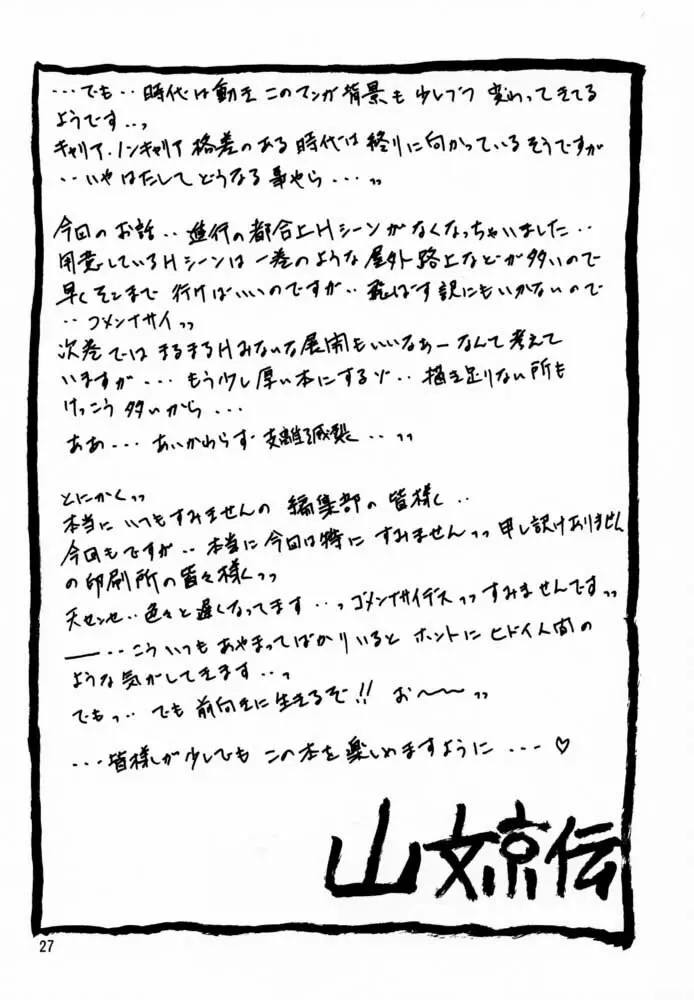 ・・・でも・・時代は動き このマンガ背景も 少しづつ 変わってきてる
ようです・・っ
キャリア・ノンキャリア 格差のある 時代は 終りに向かっているそうですが
・・いやはたして どうなる 事やら・・・っっ
今回の お話・・進行の都合上Hシーンが なくなっちゃいました・・
用意しているHシーンは 一巻のような 屋外 路上などが 多いので
早く そこまで 行けばいいのですが・・飛ばす訳にもいかないので
・・ゴメンナサイっっ
次巻では まるまるHみないな展開もいいなぁーなんて 考えて
いますが・・・もう少し 厚い本にするゾ・・描き足りない所も
けっこう 多いから・・・
ああ・・・あいかわらず 支離滅裂・・っっ
とにかくっっ
本当に いつもすみませんの 編集部の 皆様く・・
今回もですが・・本当に 今回は特に すみませんっっ 申し訳けありません
の印刷所の皆々様くっっ
天センセ・・色々と 遅くなってます・・っ ゴメンナサイデスっっ すみませんですっっ
――・・・こう いつも あやまってばかりいると ホントに ヒドイ人間の
ような 気がしてきます・・っ
でもっ・・でも 前向きに 生きるぞ!! お〜〜っっ
・・・皆様しが 少しでも この本を 楽しめますように・・・♡
山文京伝
27